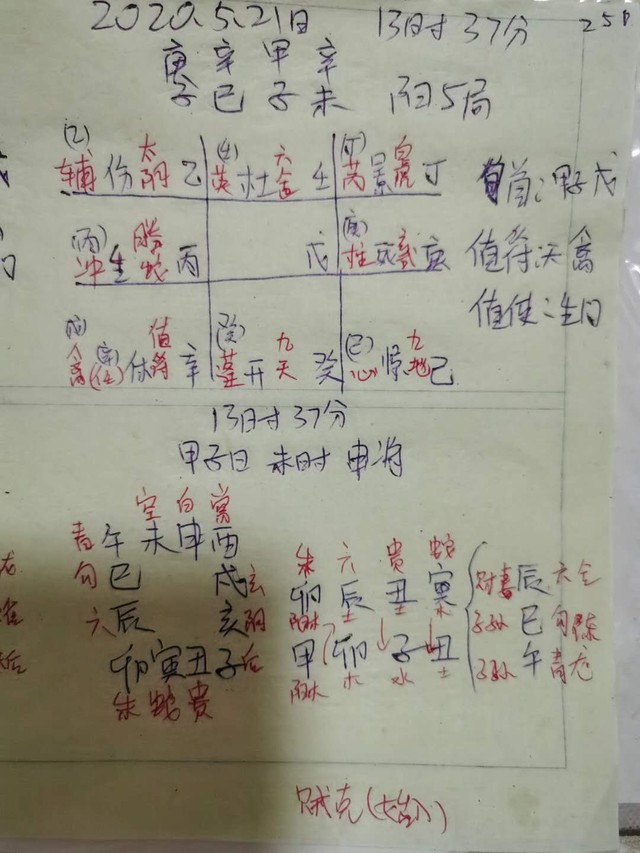 2020.5.21日 13时37分
庚 辛 甲 辛
子 巳 子 未 阳5局
(乙) 太
辅 伤 阴 乙
六
英 杜 合 壬
(丁) 白
芮 景 虎 丁
旬首：甲子戊
(丙) 腾
冲 生 蛇 丙
戊
(庚) 玄
柱 死 武 庚
值符：天禽
值使：生门
(戊) 值
禽 (任) 休 符 辛
(癸) 九
蓬 开 天 癸
(己) 九
心 惊 地 己
13时37分
甲子日 未时 申将
空 白 常
青 午 未 申 酉
勾 巳 戌 玄
六 辰 亥 阴
卯 寅 丑 子 后
朱 蛇 贵
朱 六 贵 蛇
卯 辰 丑 寅
甲 卯 子 丑
木 水 土
妻财 辰 六合
子孙 巳 勾陈
子孙 午 青龙
贼克(始入)